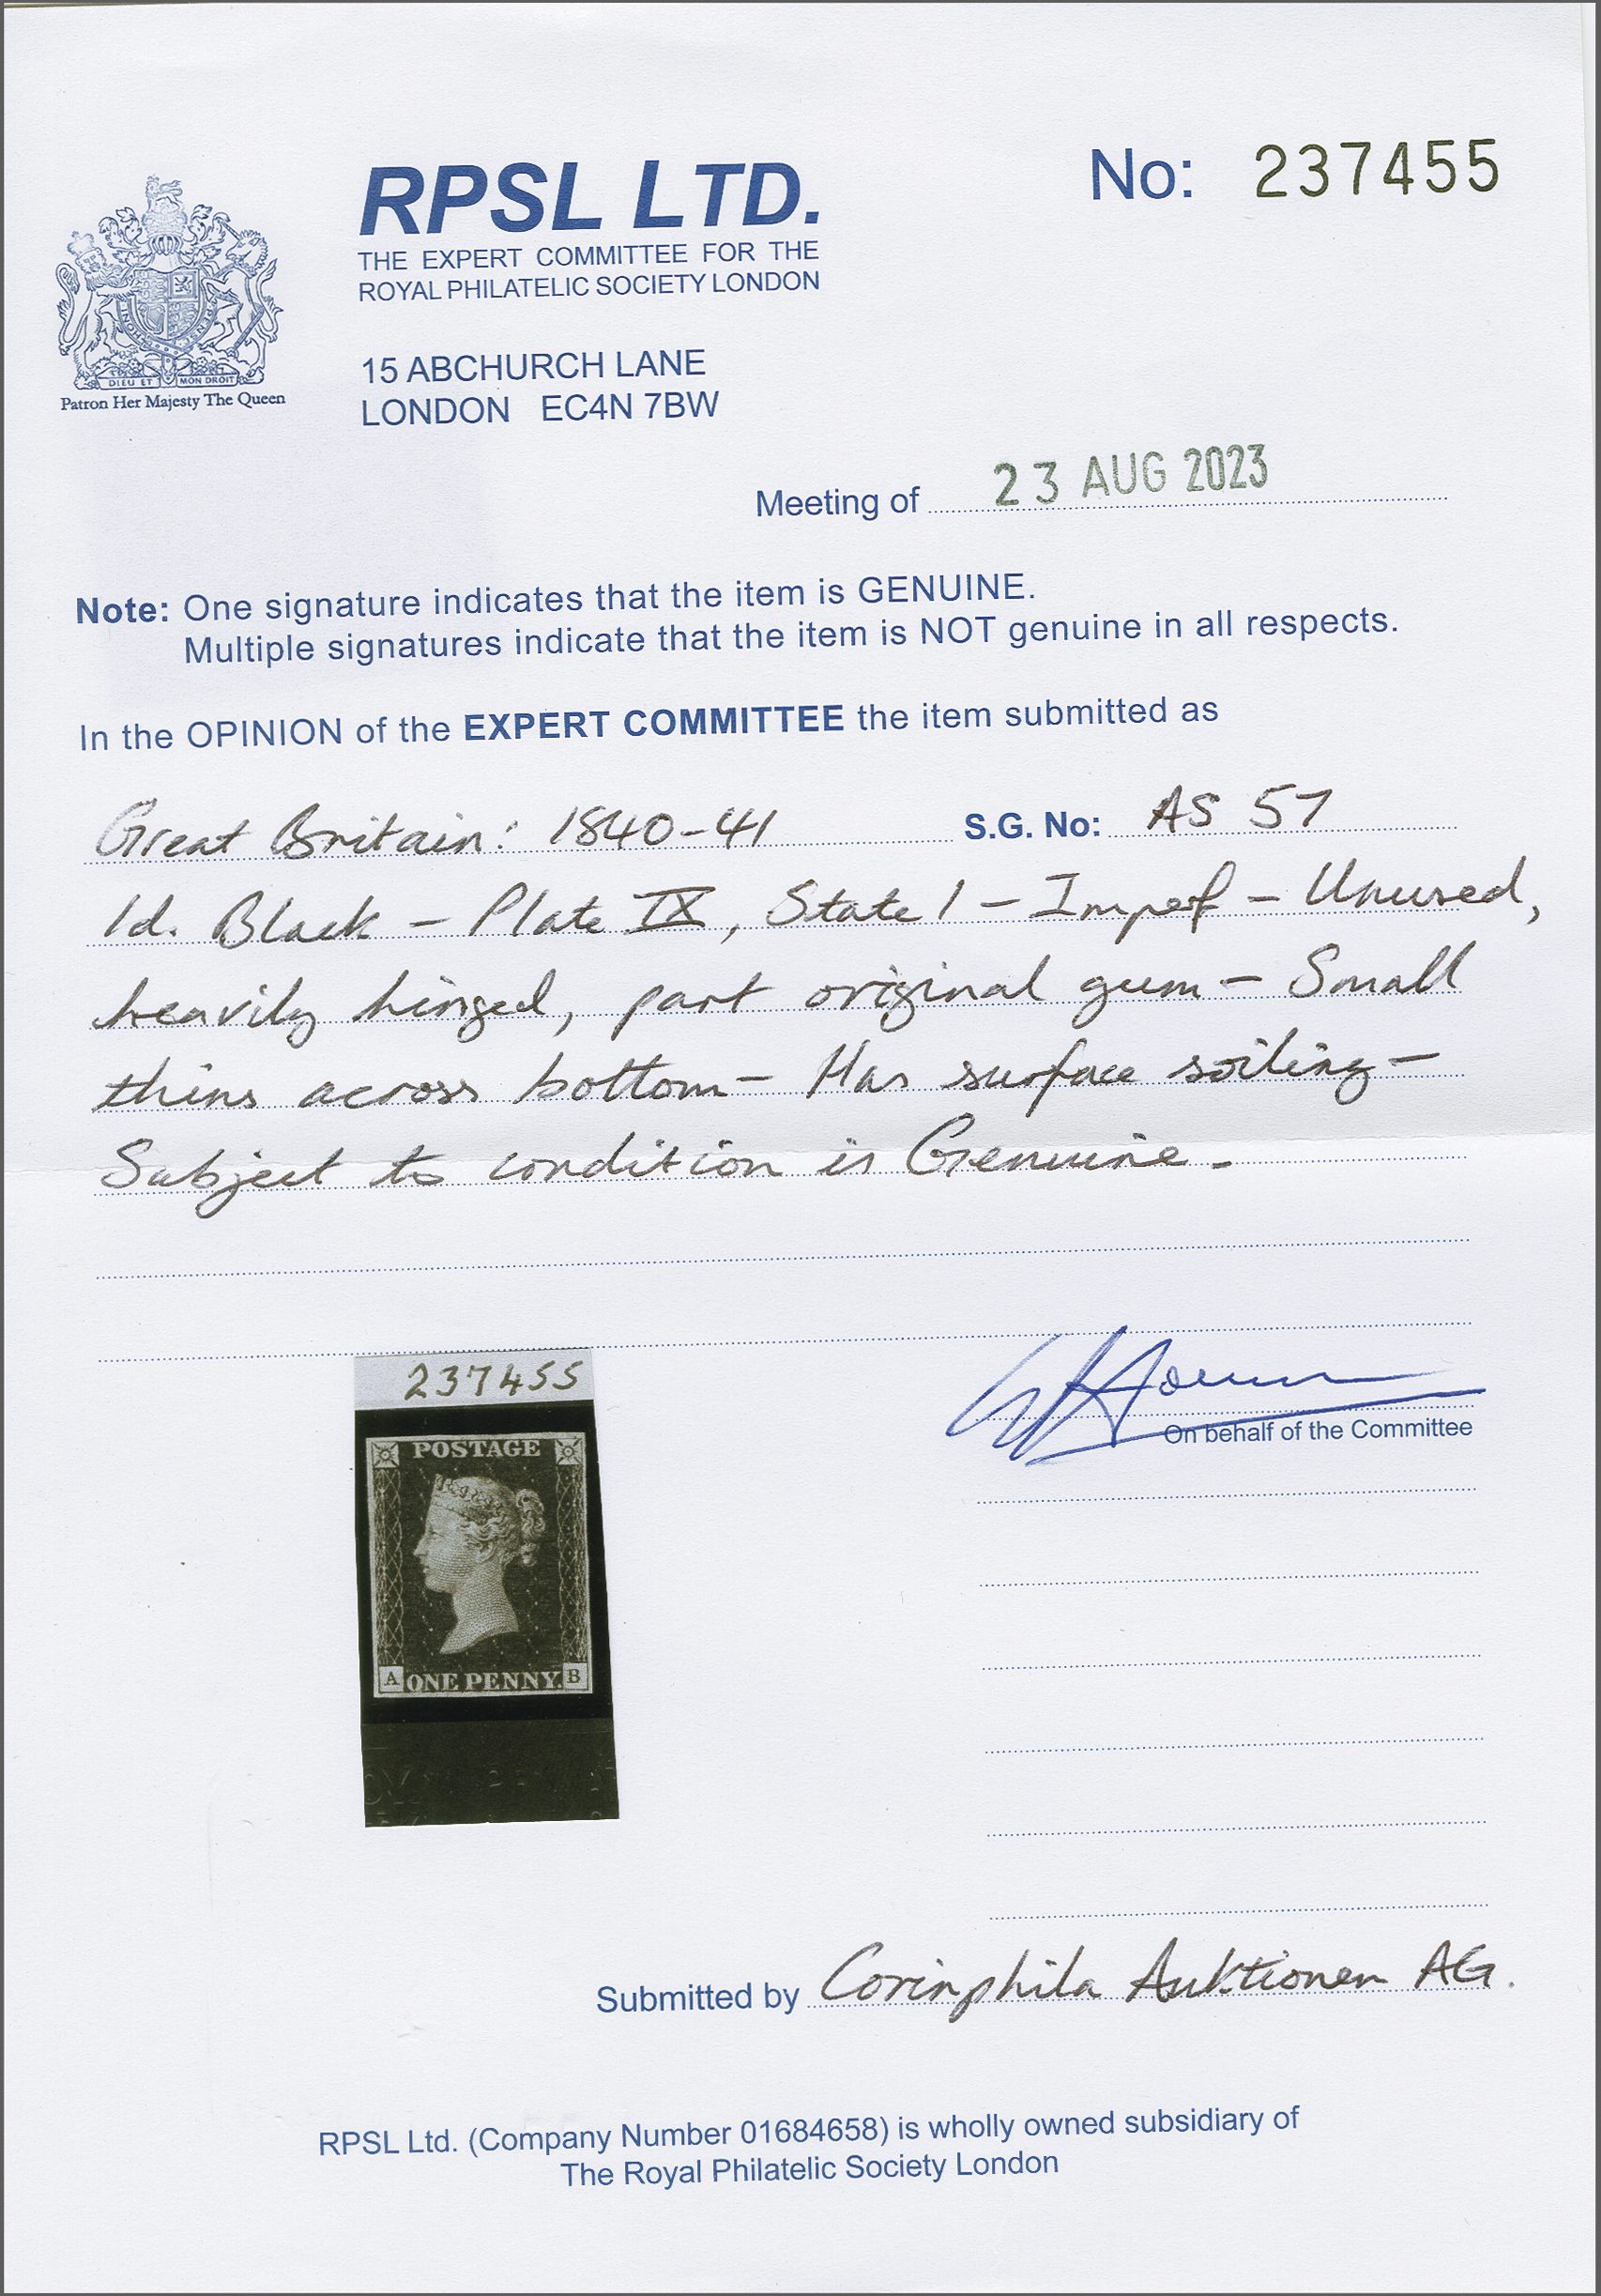 RPSL LTD.
THE EXPERT COMMITTEE FOR THE
ROYAL PHILATELIC SOCIETY LONDON
15 ABCHURCH LANE
LONDON EC4N 7BW
No: 237455
DIEU ET MON DROIT
Patron Her Majesty The Queen
Meeting of 23 AUG 2023
Note: One signature indicates that the item is GENUINE.
Multiple signatures indicate that the item is NOT genuine in all respects.
In the OPINION of the EXPERT COMMITTEE the item submitted as
Great Britain: 1840-41 S.G. No: AS 57
1d. Black - Plate IX, State 1 - Imperf - Unused,
heavily hinged, part original gum - Small
thins across bottom - Has surface soiling -
Subject to condition is Genuine.
237455
POSTAGE
A ONE PENNY. B
On behalf of the Committee
Submitted by Corinphila Auktionen AG.
RPSL Ltd. (Company Number 01684658) is wholly owned subsidiary of
The Royal Philatelic Society London